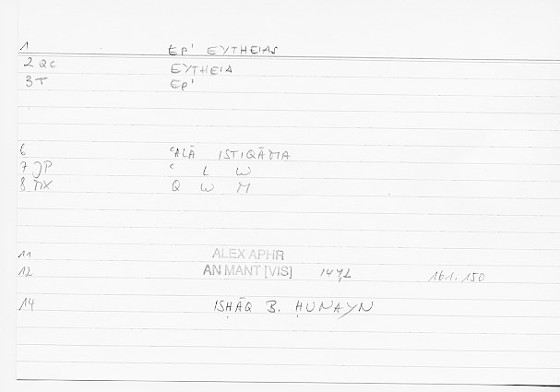 1 EP' EYTHEIAS
2 QC EYTHEIA
3 T EP'
6 ʿALĀ ISTIQĀMA
7 JP ʿ L W
8 MX Q W M
11 ALEX APHR
12 AN MANT [VIS] 161.150
14 ISḤĀQ B. ḤUNAYN